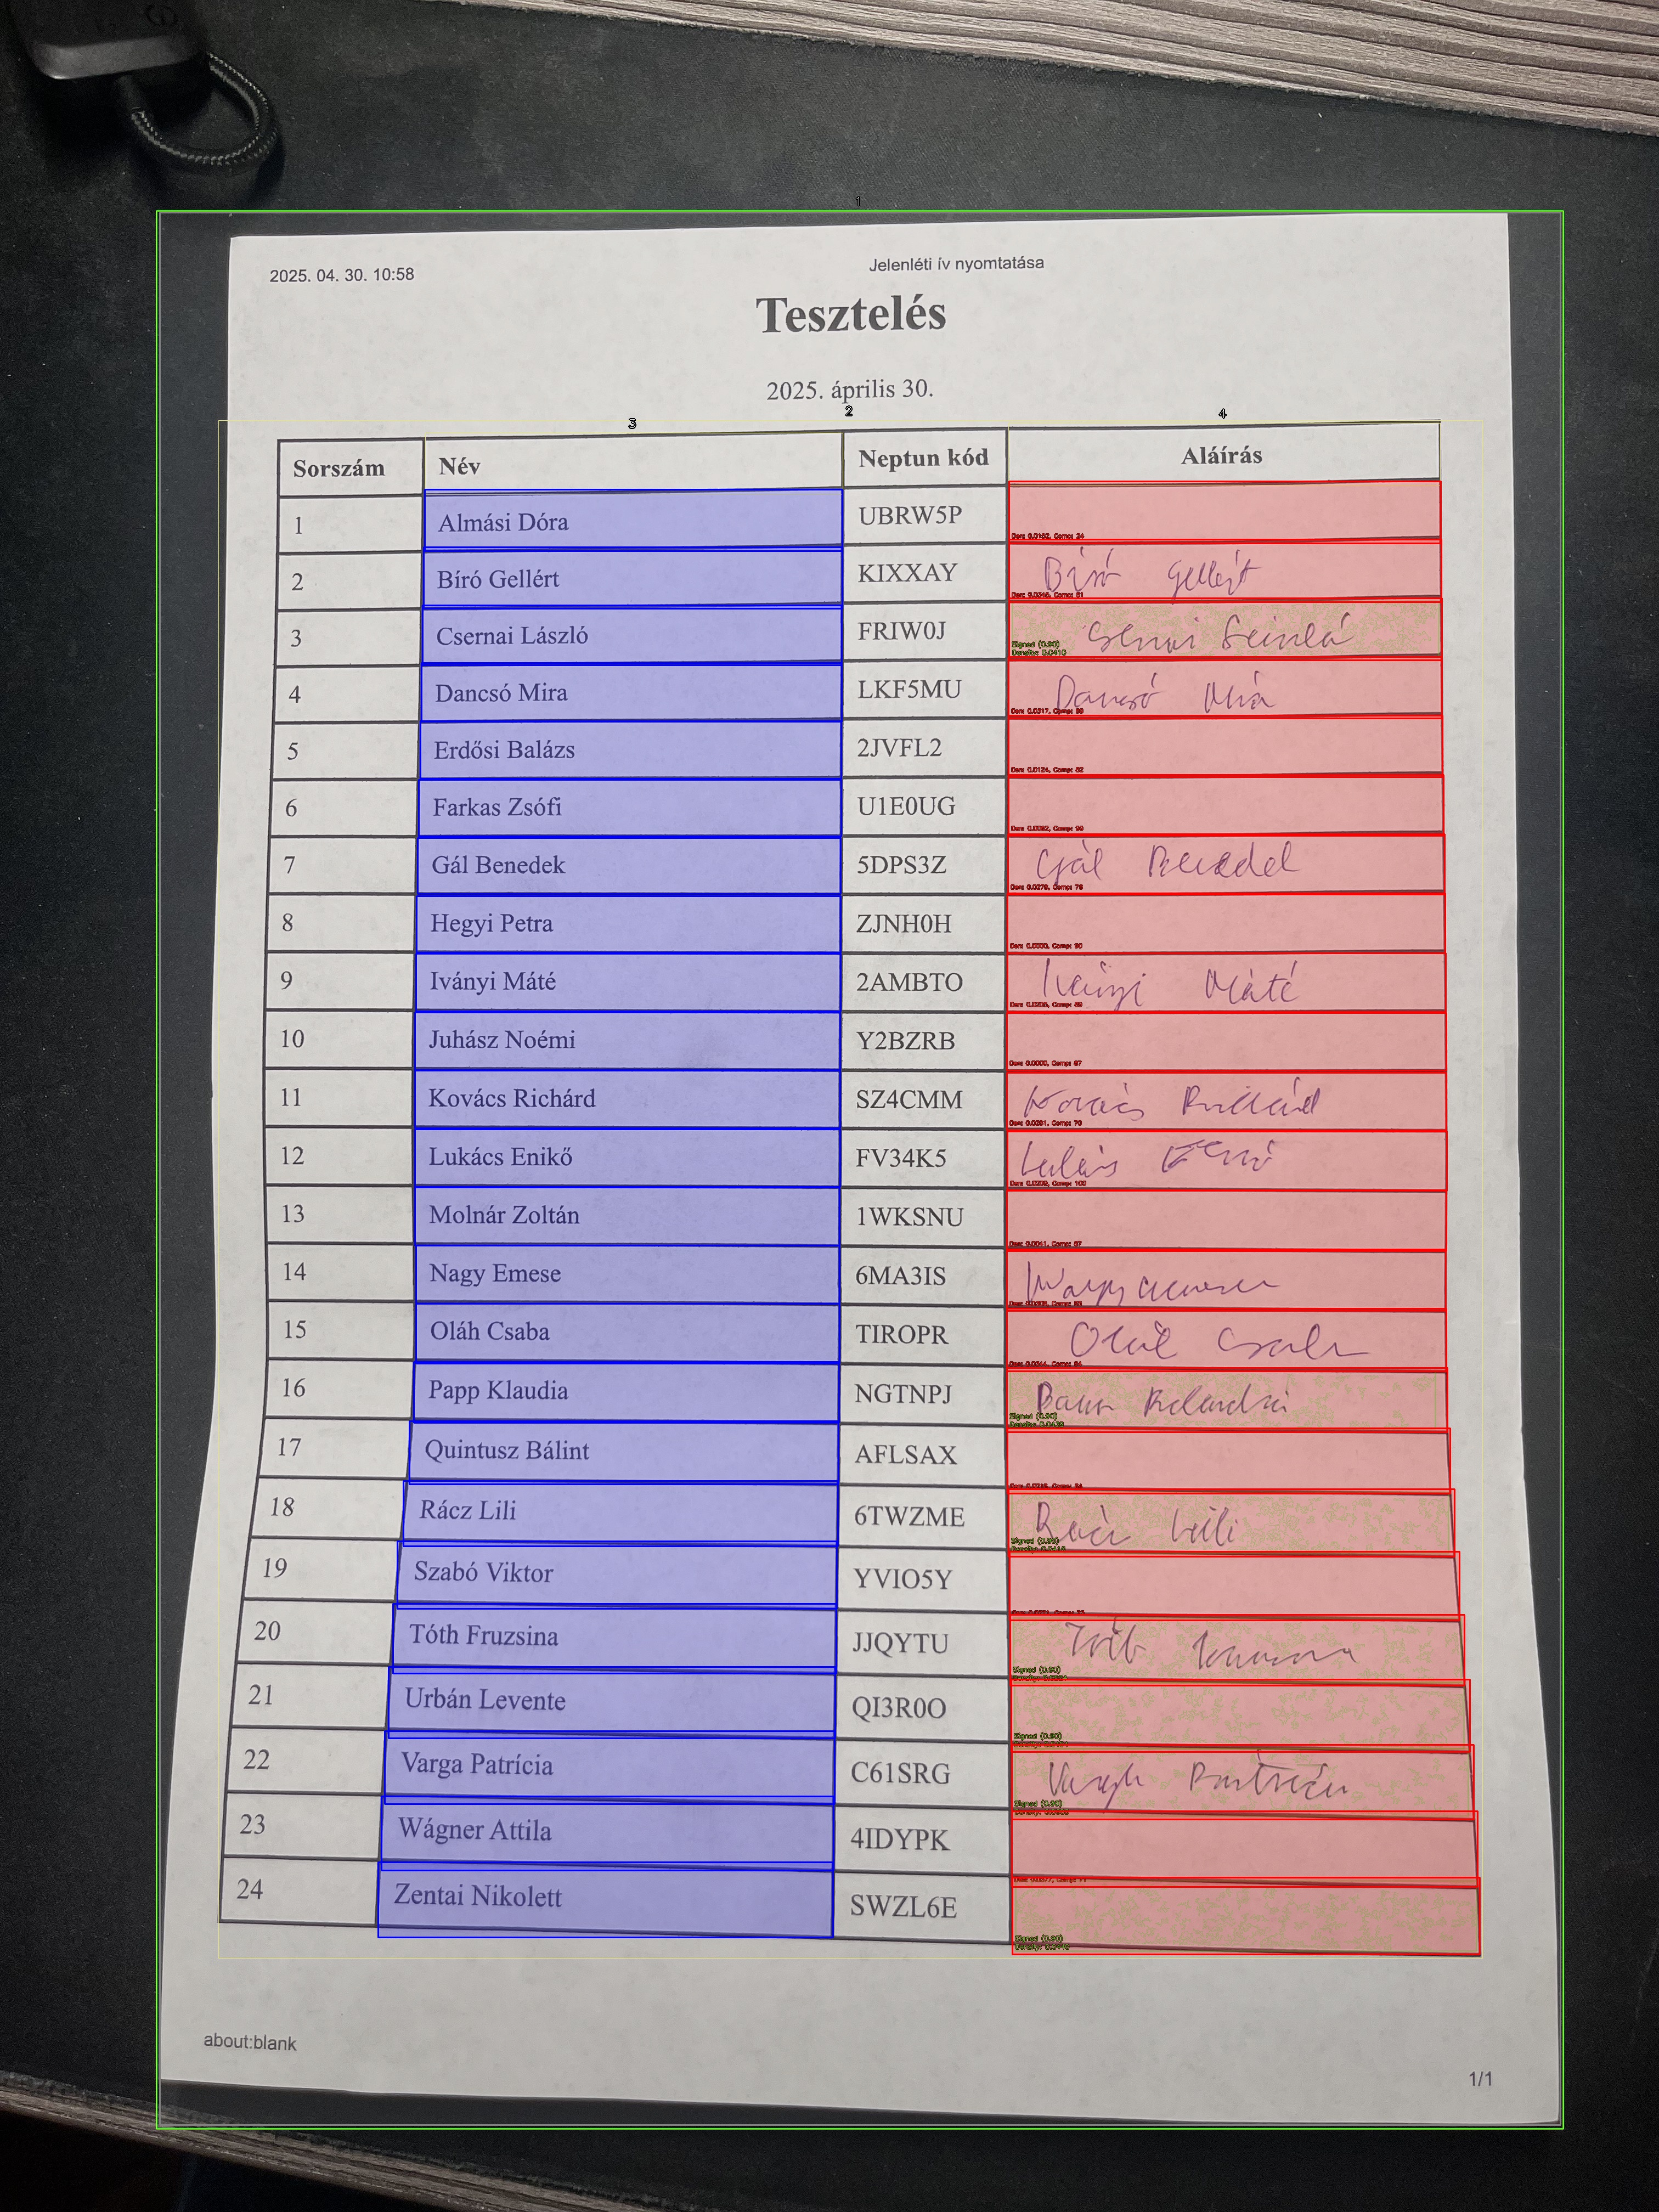 1
2025. 04. 30. 10:58
Jelenléti ív nyomtatása
Tesztelés
2025. április 30.
3 2 4
Sorszám Név Neptun kód Aláírás
1 Almási Dóra UBRW5P
2 Bíró Gellért KIXXAY Bíró Gellért
3 Csernai László FRIW0J
Signed (0.90)
Density: 0.0410
4 Dancsó Mira LKF5MU Dancsó Mira
5 Erdősi Balázs 2JVFL2
6 Farkas Zsófi U1E0UG
7 Gál Benedek 5DPS3Z Gál Benedek
8 Hegyi Petra ZJNH0H
9 Iványi Máté 2AMBTO Iványi Máté
10 Juhász Noémi Y2BZRB
11 Kovács Richárd SZ4CMM Kovács Richárd
12 Lukács Enikő FV34K5 Lukács
13 Molnár Zoltán 1WKSNU
14 Nagy Emese 6MA3IS Nagy Emese
15 Oláh Csaba TIROPR Oláh Csaba
16 Papp Klaudia NGTNPJ
Signed (0.90)
17 Quintusz Bálint AFLSAX
18 Rácz Lili 6TWZME Rácz Lili
Signed (0.90)
19 Szabó Viktor YVIO5Y
20 Tóth Fruzsina JJQYTU Tóth
Signed (0.90)
21 Urbán Levente QI3R0O
Signed (0.90)
22 Varga Patrícia C61SRG Varga Patrícia
Signed (0.90)
23 Wágner Attila 4IDYPK
24 Zentai Nikolett SWZL6E
Signed (0.90)
about:blank
1/1